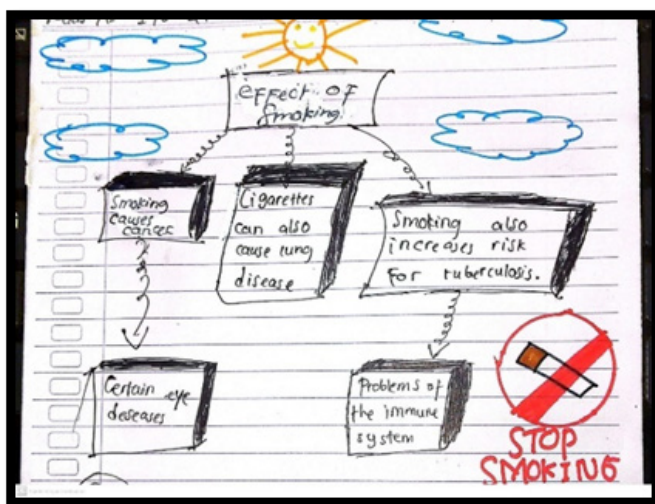 effect of
smoking
Smoking
causes
cancer
Cigarettes
can also
cause lung
disease
Smoking also
increases risk
for tuberculosis.
Certain eye
deseases
Problems of
the immune
system
STOP
SMOKING